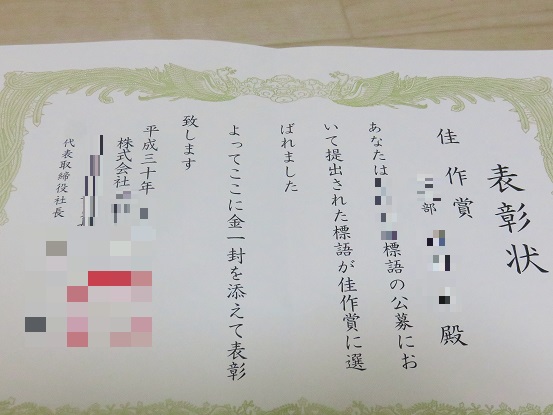 表彰状
佳作賞
部 殿
あなたは 標語の公募にお
いて提出された標語が佳作賞に選
ばれました
よってここに金一封を添えて表彰
致します
平成三十年
株式会社
代表取締役社長